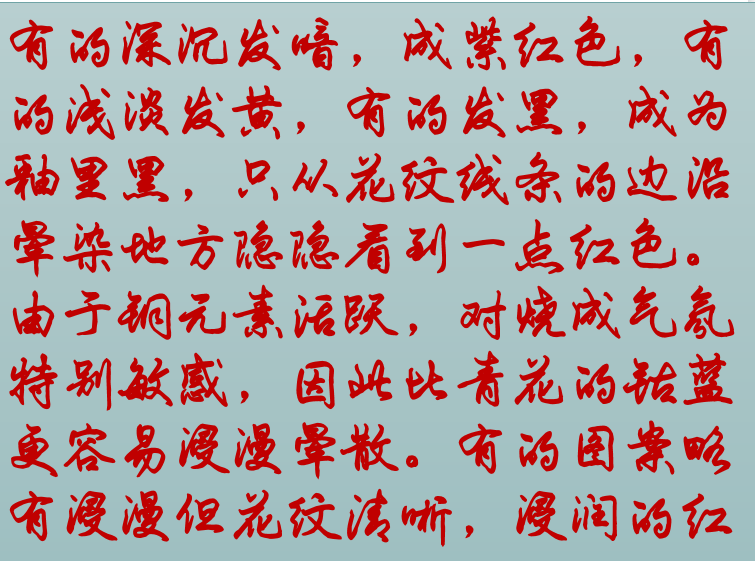 有的深沉发暗，成紫红色，有
的浅淡发黄，有的发黑，成为
釉里黑，只从花纹线条的边沿
晕染地方隐隐看到一点红色。
由于铜元素活跃，对烧成气氛
特别敏感，因此比青花的钴蓝
更容易浸漫晕散。有的图案略
有浸漫但花纹清晰，浸润的红